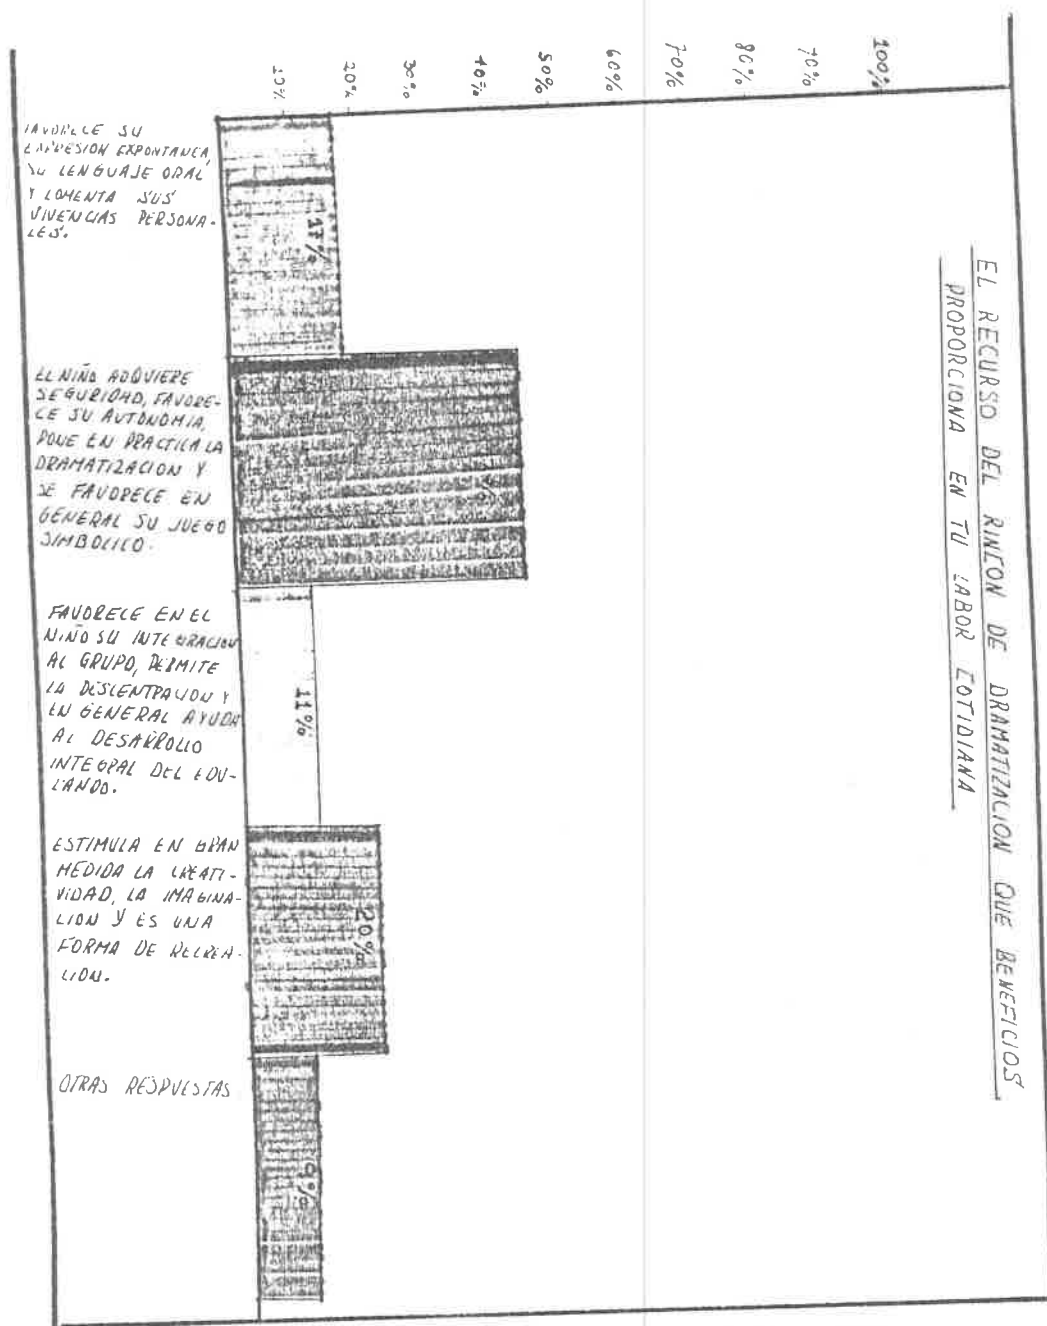 EL RECURSO DEL RINCON DE DRAMATIZACION QUE BENEFICIOS
PROPORCIONA EN TU LABOR COTIDIANA
100%
70%
80%
70%
60%
50%
40%
30%
20%
10%
17%
%
11%
20%
9%
FAVORECE SU
EXPRESION EXPONTANEA,
SU LENGUAJE ORAL
Y COMENTA SUS
VIVENCIAS PERSONA-
LES.
EL NIÑO ADQUIERE
SEGURIDAD, FAVORE-
CE SU AUTONOMIA,
PONE EN PRACTICA LA
DRAMATIZACION Y
SE FAVORECE EN
GENERAL SU JUEGO
SIMBOLICO.
FAVORECE EN EL
NIÑO SU INTEGRACION
AL GRUPO, PERMITE
LA DESCENTRACION Y
EN GENERAL AYUDA
AL DESARROLLO
INTEGRAL DEL EDU-
CANDO.
ESTIMULA EN GRAN
MEDIDA LA CREATI-
VIDAD, LA IMAGINA-
CION Y ES UNA
FORMA DE RECREA-
CION.
OTRAS RESPUESTAS